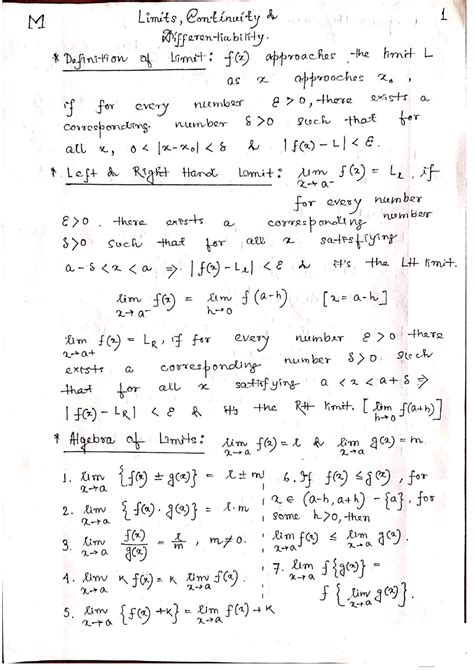 M
Limits, Continuity &
Differentiability.
1
* Definition of Limit: f(x) approaches the limit L
as x approaches x₀,
if for every number ε>0, there exists a
corresponding number δ>0 such that for
all x, 0<|x-x₀|<δ & |f(x)-L|<ε.
* Left & Right Hand Limit: lim x→a⁻ f(x) = L_L, if
for every number
ε>0. there exists a corresponding number
δ>0 such that for all x satisfying
a-δ<x<a ⇒ |f(x)-L_L|<ε & it's the LH limit.
lim x→a⁻ f(x) = lim h→0 f(a-h) [x=a-h]
lim x→a+ f(x) = L_R, if for every number ε>0 there
exists a corresponding number δ>0. such
that for all x satisfying a<x<a+δ ⇒
|f(x)-L_R|<ε & it's the RH limit. [lim h→0 f(a+h)]
* Algebra of Limits: lim x→a f(x)=l & lim x→a g(x)=m.
1. lim x→a {f(x) ± g(x)} = l±m
2. lim x→a {f(x). g(x)} = l.m
3. lim x→a f(x)/g(x) = l/m, m≠0.
4. lim x→a K f(x) = K lim x→a f(x).
5. lim x→a {f(x)+K} = lim x→a f(x)+K
6. If f(x) ≤ g(x), for
x ∈ (a-h, a+h) - {a}, for
some h>0, then
lim x→a f(x) ≤ lim x→a g(x).
7. lim x→a f{g(x)} =
f{lim x→a g(x)}.